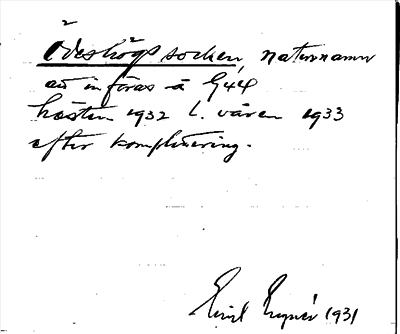 Ödeshögs socken, naturnamn
att införas å G44
hösten 1932 l. våren 1933
efter komplettering.
Emil 1931